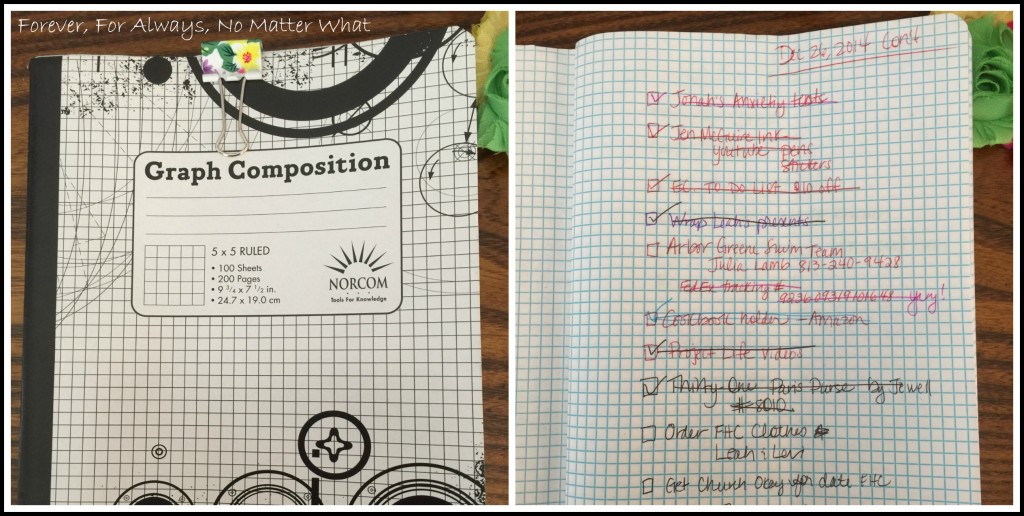 Forever, For Always, No Matter What
Graph Composition
5 x 5 RULED
• 100 Sheets
• 200 Pages
• 9 3/4 x 7 1/2 in.
• 24.7 x 19.0 cm
NORCOM
Tools For Knowledge
Dec 26, 2014 Con't
Jonah's Anxiety tests
Jen McGuire Ink
youtube pens
stickers
EC TO DO LIST $10 off
Wrap Leah's presents
Arbor Greene Swim Team
Julia Lamb 813-240-9428
FedEx tracking #
yay!
Cookbook holder - Amazon
Project Life Videos
Thirty-One Paris Purse by Jewell
#8010
Order FHC Clothes
Leah : Levi
Get Church Okay for date FHC